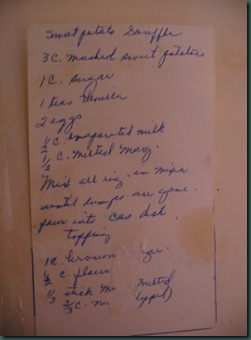 Sweet potato Souffle
3 C. Mashed sweet potatoes
1 C. sugar
1 teas Vanilla
2 eggs
½ C evaporated milk
½ C. Melted Marg.
Mix all ing. in mixer
until lumps are gone.
pour into Cas dish.
topping
1 C. brown
½ C flour
⅓ stick Ma Melted
⅔ C. Nu